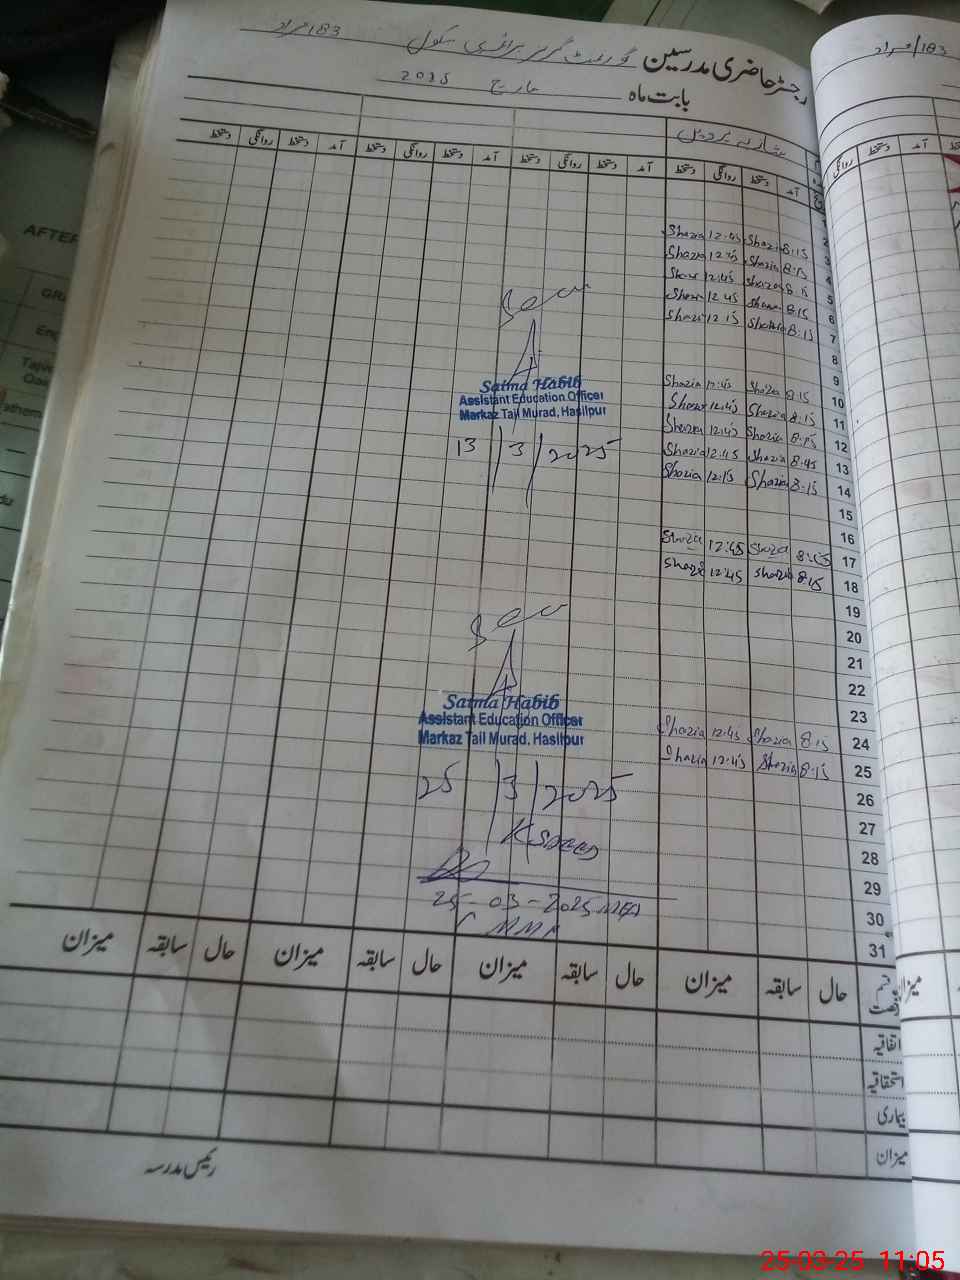 رجسٹر حاضری مدرسین گورنمنٹ گرلز پرائمری سکول 183/مراد
بابت ماہ مارچ 2025
آمد دستخط روانگی دستخط آمد دستخط روانگی دستخط آمد دستخط روانگی دستخط آمد دستخط روانگی دستخط
1
2
3 8:15 Shazia 12:45 Shazia
4 8:15 Shazia 12:45 Shazia
5 8:15 Shazia 12:45
6 8:15 12:45
7 8:15 12:15 Shazia
8
9
10 8:15 Shazia 12:45 Shazia
11 8:15 Shazia 12:45
12 8:15 Shazia 12:45 Shazia
13 8:45 Shazia 12:45 Shazia
14 8:15 Shazia 12:15 Shazia
15
16
17 8:15 Shazia 12:45 Shazia
18 8:15 Shazia 12:45 Shazia
19
20
21
22
23
24 8:15 Shazia 12:45 Shazia
25 8:15 Shazia 12:45 Shazia
26
27
28
29
30
31
Saima Habib
Assistant Education Officer
Markaz Tail Murad, Hasilpur
13/3/2025
Saima Habib
Assistant Education Officer
Markaz Tail Murad, Hasilpur
25/3/2025
25-03-2025 MEA
قسم رخصت حال سابقہ میزان حال سابقہ میزان حال سابقہ میزان حال سابقہ میزان
اتفاقیہ
استحقاقیہ
بیماری
میزان
رئیس مدرسہ
183/مراد
آمد دستخط روانگی
میزان
AFTER
25-03-25 11:05